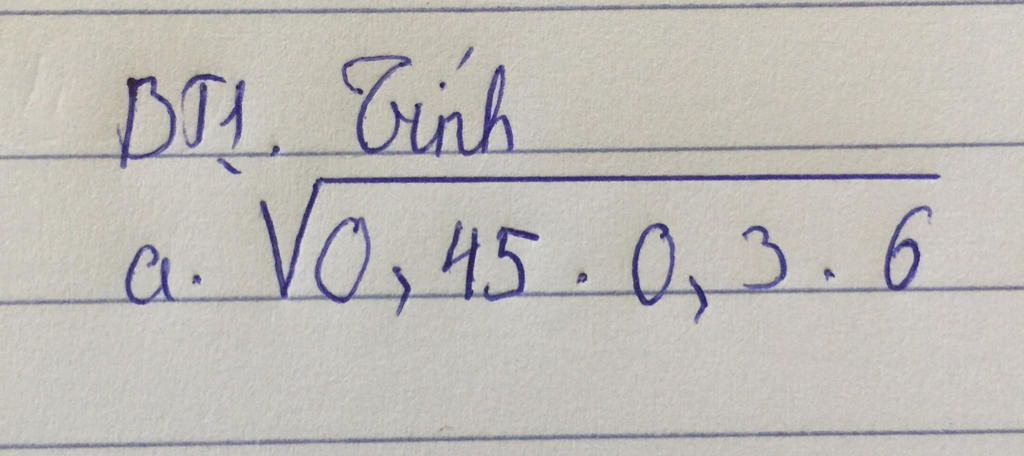 BT1. Tính
a. √0,45 . 0,3 . 6